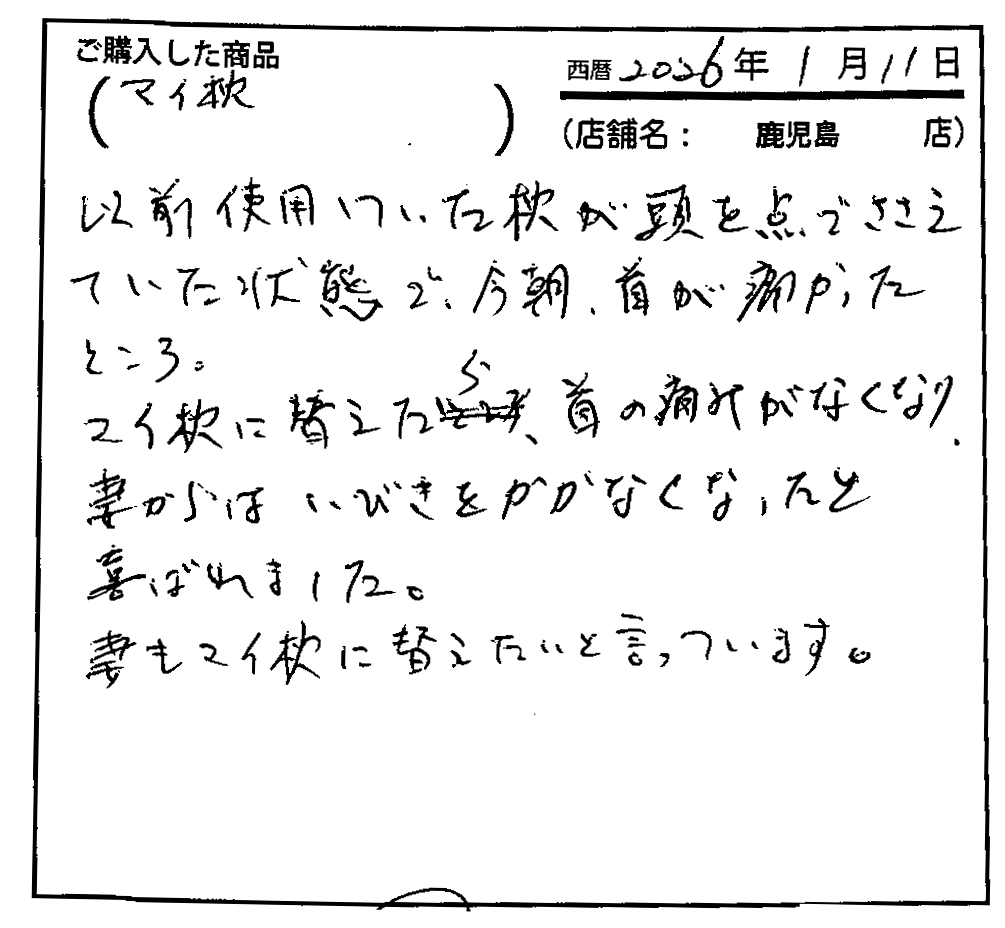 ご購入した商品
(マイ枕)
西暦2026年1月11日
(店舗名： 鹿児島 店)
以前使用していた枕が頭を点でささえ
ていた状態で、今朝、首が痛かった
ところ。
マイ枕に替えたら、首の痛みがなくなり、
妻からはいびきをかかなくなったと
喜ばれました。
妻もマイ枕に替えたいと言っています。